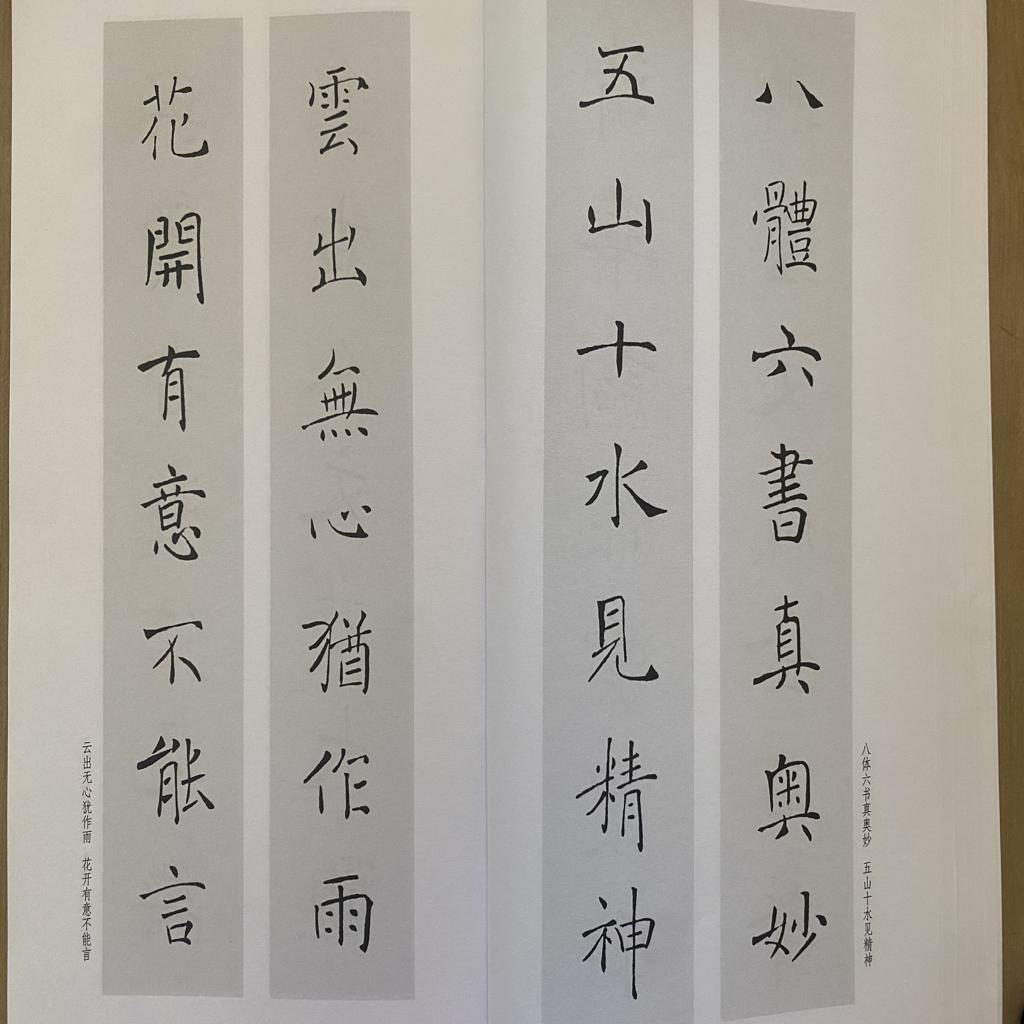 八體六書真奥妙
五山十水見精神
八体六书真奥妙 五山十水见精神
雲出無心猶作雨
花開有意不能言
云出无心犹作雨 花开有意不能言